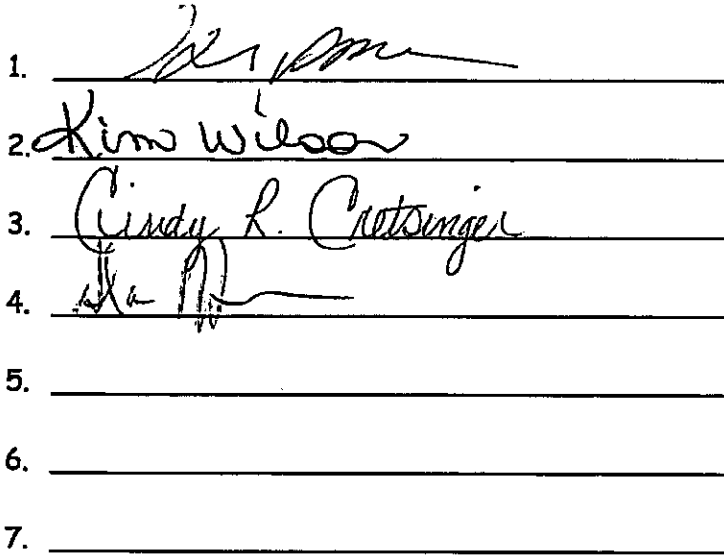 1.
2. Kim Wilson
3. Cindy R. Cretsinger
4.
5.
6.
7.